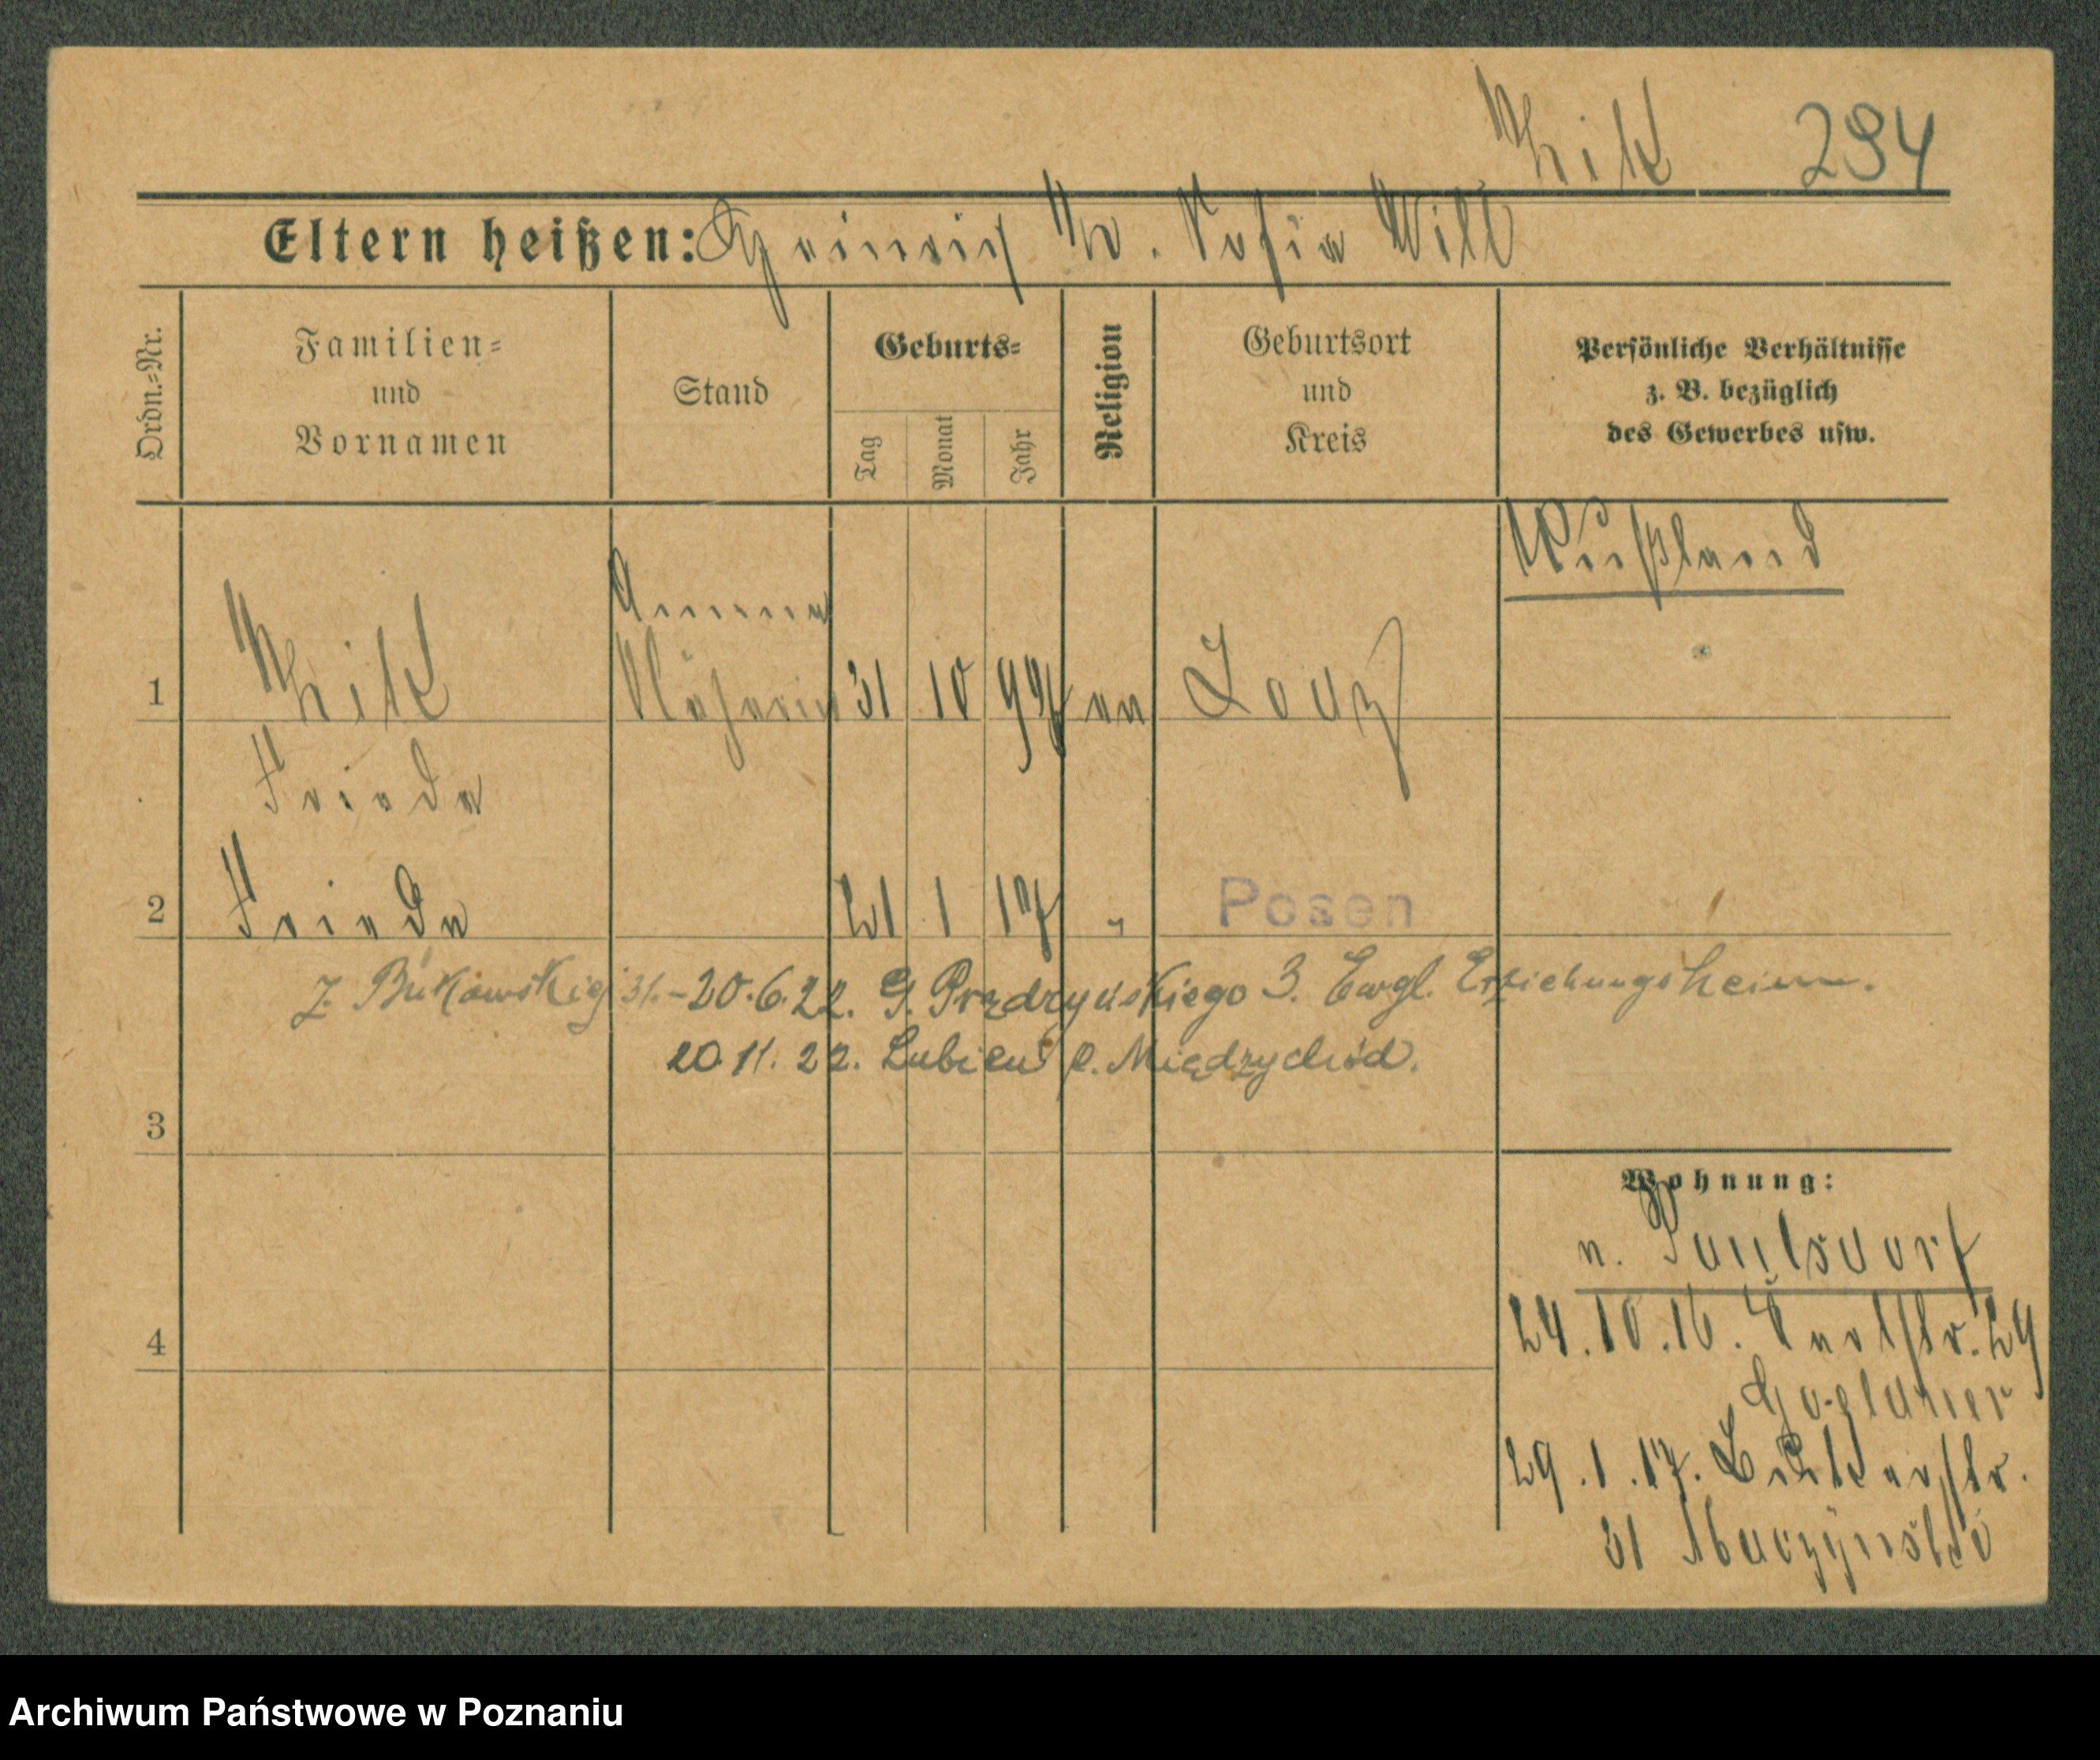 294
Eltern heißen: Heinrich W. Sofia Will
Ordn.=Nr.
Familien=
und
Vornamen
Stand
Geburts=
Tag
Monat
Jahr
Religion
Geburtsort
und
Kreis
Persönliche Verhältnisse
z. B. bezüglich
des Gewerbes usw.
Rußland
Amme
1 Näherin 31 10 97 ev Lodz
Frieda
2 Frieda 21 1 17 " Posen
J. Bukowskiej 31.-20.6.22. G. Prądzyńskiego 3. Evgl. Erziehungsheim.
20.11.22. Lubień p. Międzychód.
3
Wohnung:
n. Paulsdorf
4 24.10.16. Karlstr. 29
29.1.17. Bäckerstr.
31
Archiwum Państwowe w Poznaniu